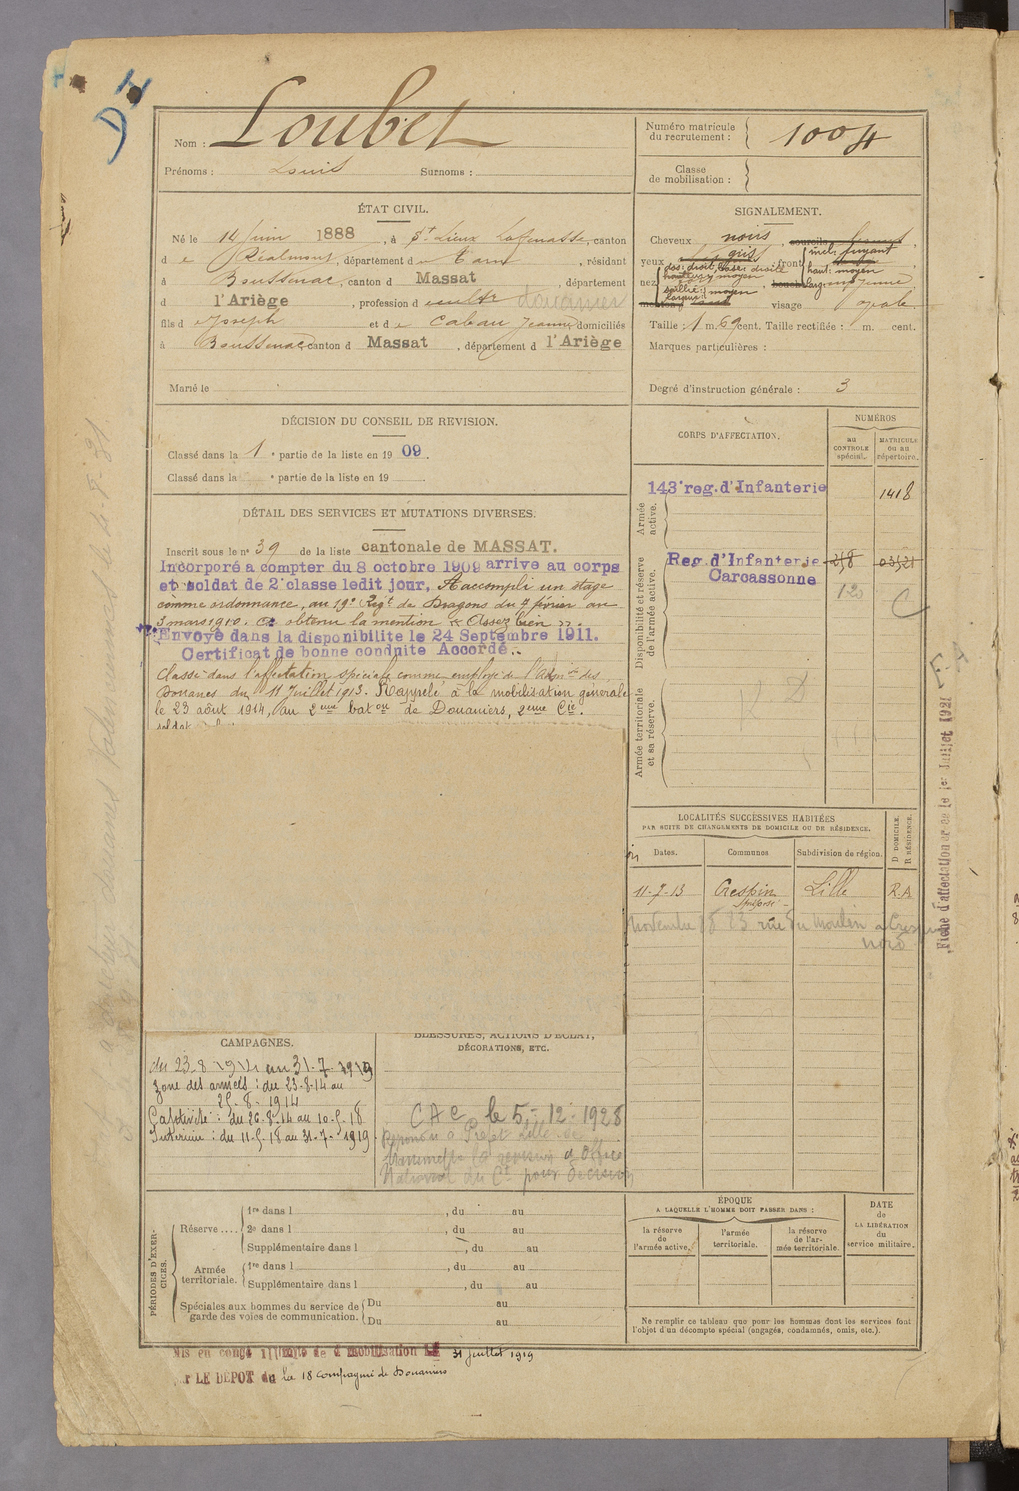 Nom : Loubet
Prénoms : Louis Surnoms :
Numéro matricule
du recrutement : 1004
Classe
de mobilisation :
ÉTAT CIVIL.
Né le 14 juin 1888, à St Lieux Lafenasse, canton
de Réalmont, département du Tarn, résidant
à Boussenac, canton d Massat, département
d l'Ariège, profession d cultr douanier
fils d Joseph et de Cabau Jeanne, domiciliés
à Boussenac canton d Massat, département d l'Ariège
Marié le
SIGNALEMENT.
Cheveux noirs, sourcils
yeux gris, front incl: fuyant
haut: moyen
nez dos: droit, base: droite
hauteur: moyen
saillie: moyen
largeur:
visage ovale
Taille : 1 m. 69 cent. Taille rectifiée : m. cent.
Marques particulières :
Degré d'instruction générale : 3
DÉCISION DU CONSEIL DE REVISION.
Classé dans la 1e partie de la liste en 1909.
Classé dans la e partie de la liste en 19
DÉTAIL DES SERVICES ET MUTATIONS DIVERSES.
Inscrit sous le no 39 de la liste cantonale de MASSAT.
Incorporé a compter du 8 octobre 1909 arrive au corps
et soldat de 2e classe ledit jour, A accompli un stage
comme ordonnance, au 19e Régt de Dragons du 7 février au
3 mars 1910. a obtenu la mention « Assez bien ».
Envoyé dans la disponibilite le 24 Septembre 1911.
Certificat de bonne conduite Accordé.
Classé dans l'affectation spéciale comme employé de l'Admon des
Douanes du 11 Juillet 1913. Rappelé à la mobilisation générale
le 23 août 1914, au 2eme baton de Douaniers, 2eme Cie.
soldat
CORPS D'AFFECTATION.
NUMÉROS
au
CONTROLE
spécial.
MATRICULE
ou au
répertoire.
Armée
active.
143e reg. d'Infanterie 1418
Disponibilité et réserve
de l'armée active.
Reg. d'Infanterie 258 03521
Carcassonne
120
C
Armée territoriale
et sa réserve.
LOCALITÉS SUCCESSIVES HABITÉES
PAR SUITE DE CHANGEMENTS DE DOMICILE OU DE RÉSIDENCE.
Dates. Communes Subdivision de région. D DOMICILE. R RÉSIDENCE.
11-7-13 Crespin Lille R.A
préposé
Novembre 18 23 rue du Moulin à Crespin
nord
Fiche d'affectation créée le 1er Juillet 1921
CAMPAGNES.
du 23-8-1914 au 31-7-1919
Zone des armées : du 23-8-14 au
25-8-1914
Captivité : du 26-8-14 au 10-5-18
Intérieur : du 11-5-18 au 31-7-1919
BLESSURES, ACTIONS D'ÉCLAT,
DÉCORATIONS, ETC.
CAC le 5-12-1928
National du Ct pour décision
PÉRIODES D'EXERCICES.
Réserve ....
1re dans l , du au
2e dans l , du au
Supplémentaire dans l , du au
Armée
territoriale.
1re dans l , du au
Supplémentaire dans l , du au
Spéciales aux hommes du service de
garde des voies de communication.
Du au
Du au
ÉPOQUE
A LAQUELLE L'HOMME DOIT PASSER DANS :
la réserve
de
l'armée active.
l'armée
territoriale.
la réserve
de l'ar-
mée territoriale.
DATE
de
LA LIBÉRATION
du
service militaire.
Ne remplir ce tableau que pour les hommes dont les services font
l'objet d'un décompte spécial (engagés, condamnés, omis, etc.).
Mis en congé illimité de démobilisation le 31 juillet 1919
r LE DEPOT du la 18 compagnie de Douaniers